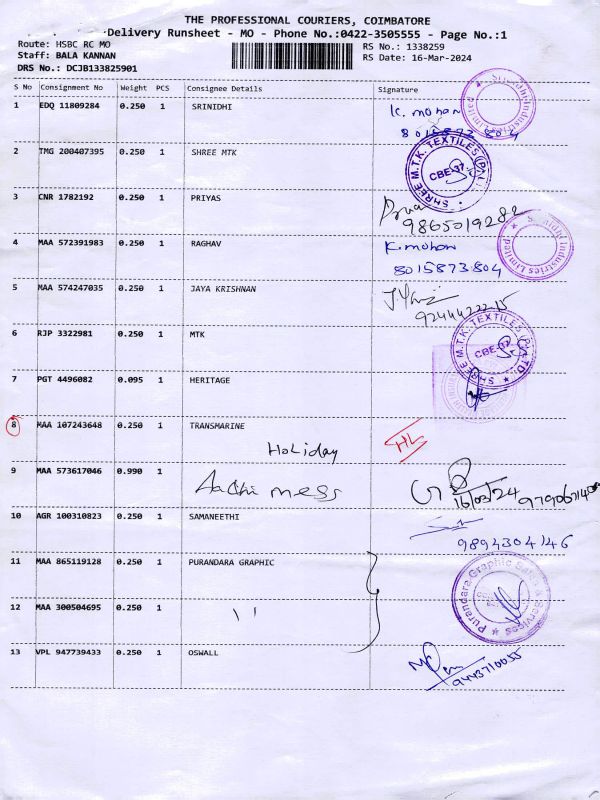 THE PROFESSIONAL COURIERS, COIMBATORE
Delivery Runsheet - MO - Phone No.:0422-3505555 - Page No.:1
Route: HSBC RC MO
RS No.: 1338259
Staff: BALA KANNAN
RS Date: 16-Mar-2024
DRS No.: DCJB133825901
S No Consignment No Weight PCS Consignee Details Signature
1 EDQ 11809284 0.250 1 SRINIDHI K. mohan
8015873 804
Srinidhi Industries Limited
2 TMG 200407395 0.250 1 SHREE MTK
SHREE M.T.K. TEXTILES (P) LTD CBE-37
3 CNR 1782192 0.250 1 PRIYAS
9865019282
4 MAA 572391983 0.250 1 RAGHAV K. mohan
8015873804
Srinidhi Industries Limited
5 MAA 574247035 0.250 1 JAYA KRISHNAN
6 RJP 3322981 0.250 1 MTK
SHREE M.T.K. TEXTILES (P) LTD CBE-37
7 PGT 4496082 0.095 1 HERITAGE
8 MAA 107243648 0.250 1 TRANSMARINE HL
Holiday
9 MAA 573617046 0.990 1
Aachi mess
16/03/24
10 AGR 100310823 0.250 1 SAMANEETHI
9894304146
11 MAA 865119128 0.250 1 PURANDARA GRAPHIC
Purandara Graphic Sales & Services
12 MAA 300504695 0.250 1 ''
13 VPL 947739433 0.250 1 OSWALL
9443710055